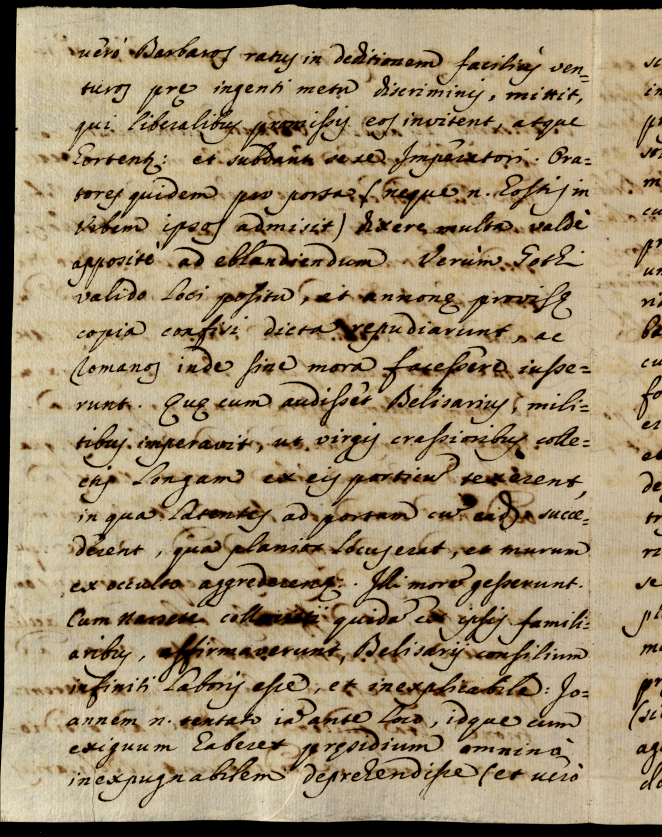 verò Barbaros ratus in deditionem faciliùs ven=
turos prę ingenti metu discriminis, mittit,
qui liberalibus promissis eos invitent, atque
hortent: et subdant sese Imperatori. Ora=
tores quidem pro porta (neque n. hostis in
Urbem ipsos admisit) dixere multa valdè
appositè ad eblandiendum. Verùm Gothi
valido loci positu, et annonę provisę
copia confisi dicta repudiarunt, ac
Romanos inde sine mora facessere iusse=
runt. Quę cum audisset Belisarius, mili=
tibus imperavit, ut virgis crassioribus colle=
ctis longam ex eis porticũ texerent,
in qua latentes ad portam cũ succe=
derent, qua planior locus erat, et murum
ex occulto aggrederent. Illi morẽ gesserunt.
Cum Narsete quidã ex ipsis famili=
aribus, affirmaverunt, Belisarij consilium
infiniti laboris esse, et inexplicabile: Jo=
annem n. tentato iã ante loco, idque cum
exiguum haberet pręsidium omninò
inexpugnabilem deprehendisse (et verò